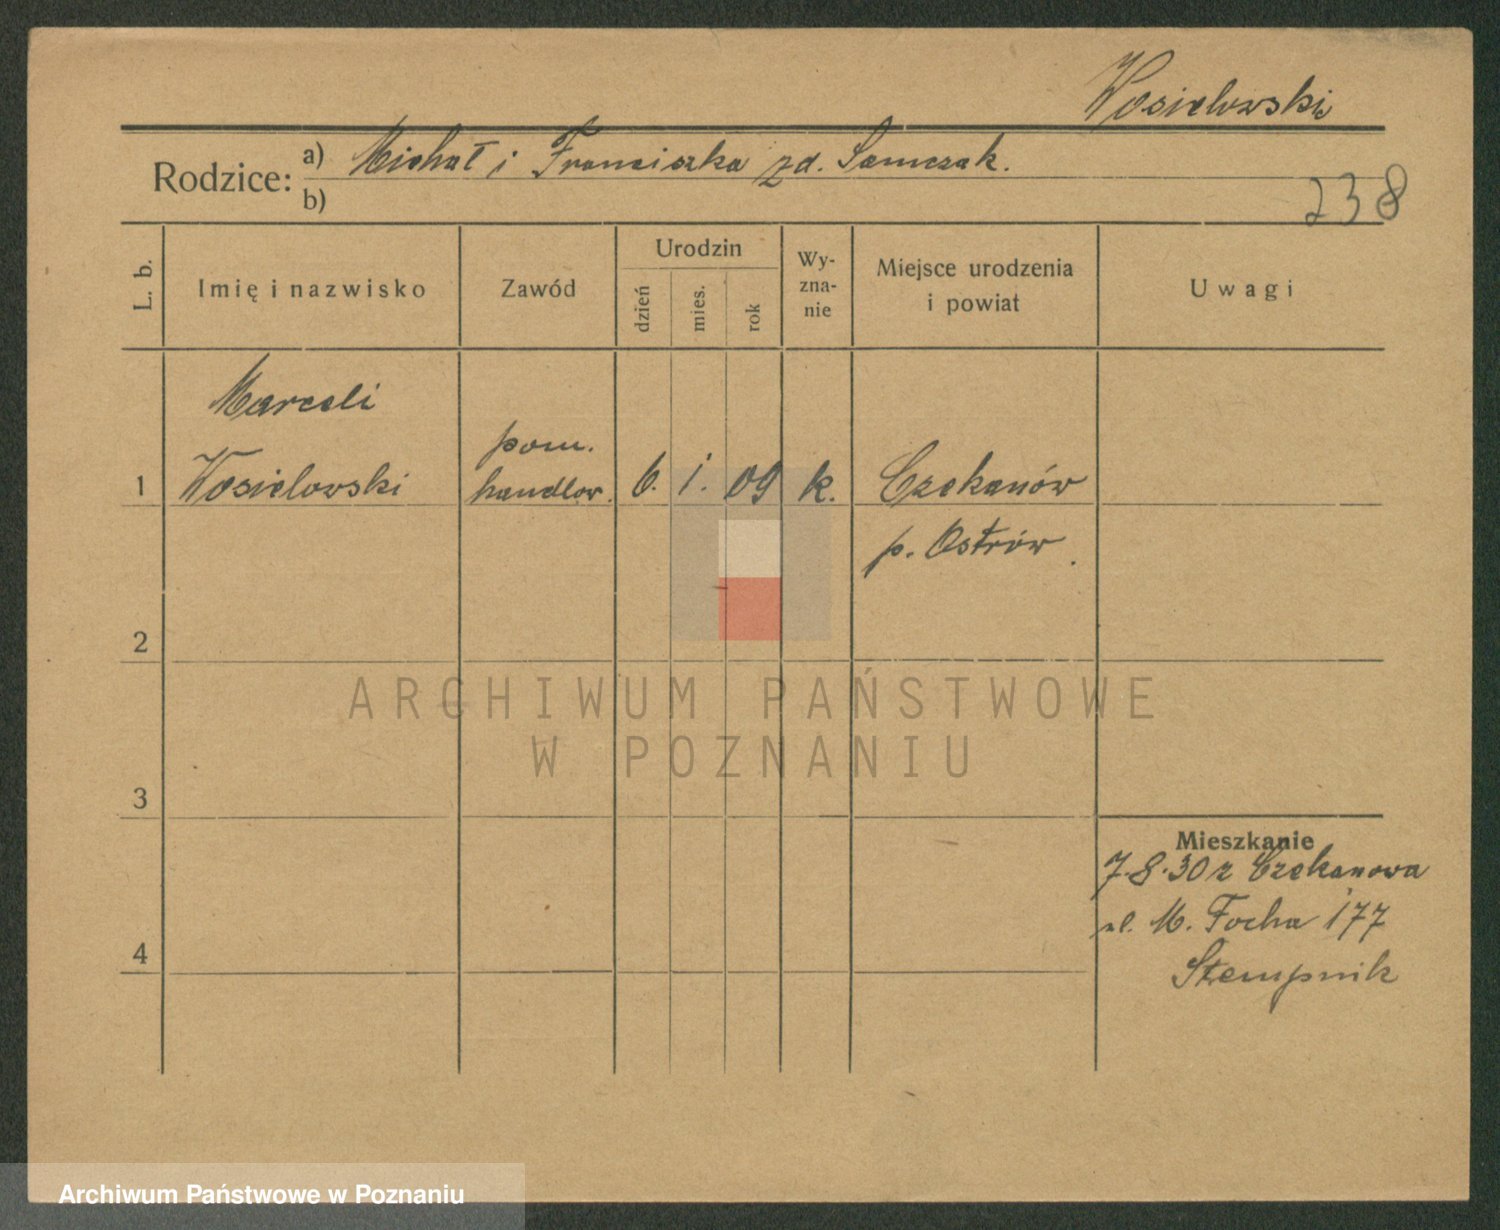 Wosielowski
Rodzice: a) Michał i Franciszka zd. Samczak.
b)
238
L. b.
Imię i nazwisko
Zawód
Urodzin
dzień
mies.
rok
Wy-
zna-
nie
Miejsce urodzenia
i powiat
Uwagi
1
Marceli
Wosielowski
pom.
handlow.
6. 1. 09
k.
Czekanów
p. Ostrów.
2
3
4
Mieszkanie
7.8.30 z Czekanowa
ul. M. Focha 177
Stempnik
ARCHIWUM PAŃSTWOWE
W POZNANIU
Archiwum Państwowe w Poznaniu